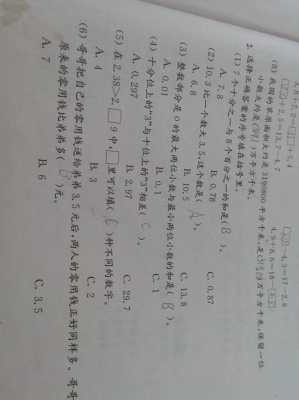 2. 选择正确答案的序号填在括号里。
(1) 7个十分之一与8个百分之一的和是( B )。
A. 7.8 B. 0.78 C. 0.87
(2) 10.3比一个数大3.5,这个数是( A )。
A. 6.8 B. 10.5 C. 13.8
(3) 整数部分是0的最大两位小数与最小两位小数的和是( B )。
A. 0.01 B. 0.1 C. 1
(4) 十分位上的“3”与十位上的“3”相差( C )。
A. 0.297 B. 2.97 C. 29.7
(5) 在2.38>2.□9中,□里可以填( )种不同的数字。
A. 4 B. 3 C. 2
(6) 哥哥把自己的零用钱送给弟弟3.5元后,两人的零用钱正好同样多。哥哥
原来的零用钱比弟弟多( )元。
A. 7 B. 6 C. 3.5